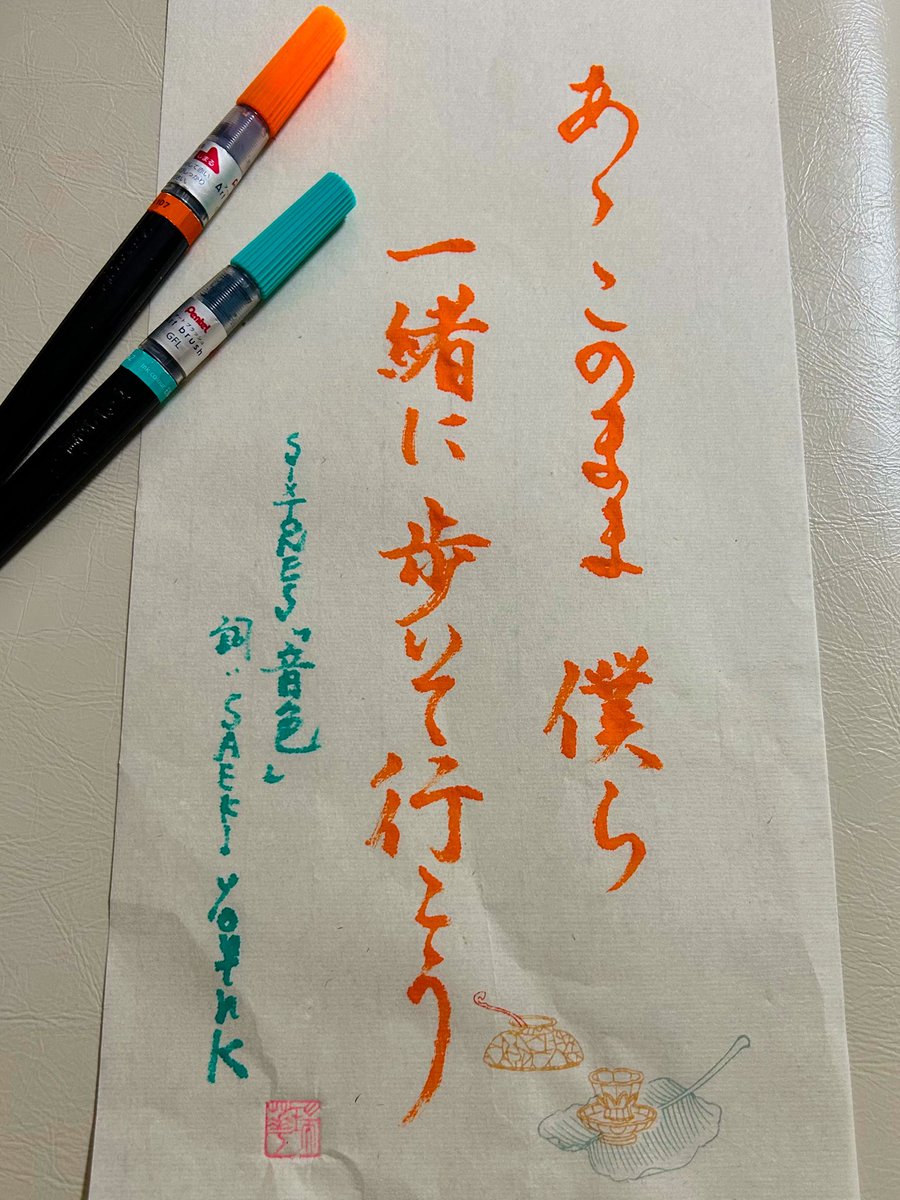 あゝ このまま 僕ら
一緒に 歩いて行こう
SixTONES「音色」
詞：SAEKI youthK
Pentel
Art brush
GFL